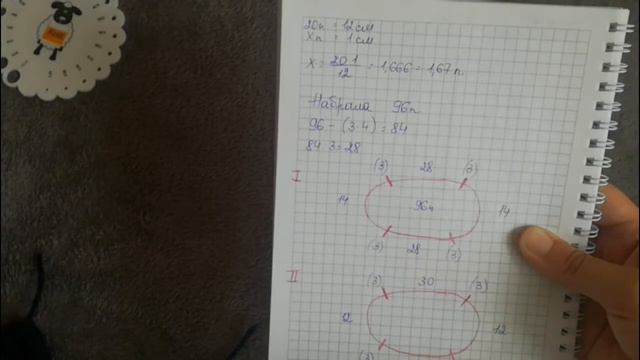 20п = 12 см
Xп = 1 см
X = 20·1 / 12 = 1,666 = 1,67 п.
Набрала 96п
96 - (3·4) = 84
84 3 = 28
I
(3) 28 (3)
14 96п 14
(3) 28 (3)
II
(3) 30 (3)
12 12